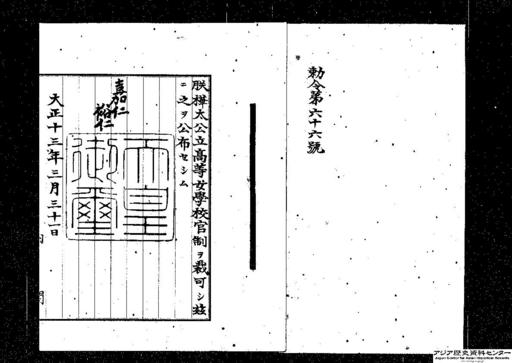 勅令第六十六號
朕樺太公立高等女學校官制ヲ裁可シ玆
ニ之ヲ公布セシム
嘉仁
裕仁
天皇御璽
大正十三年三月三十一日
内閣
アジア歴史資料センター
Japan Center for Asian Historical Records